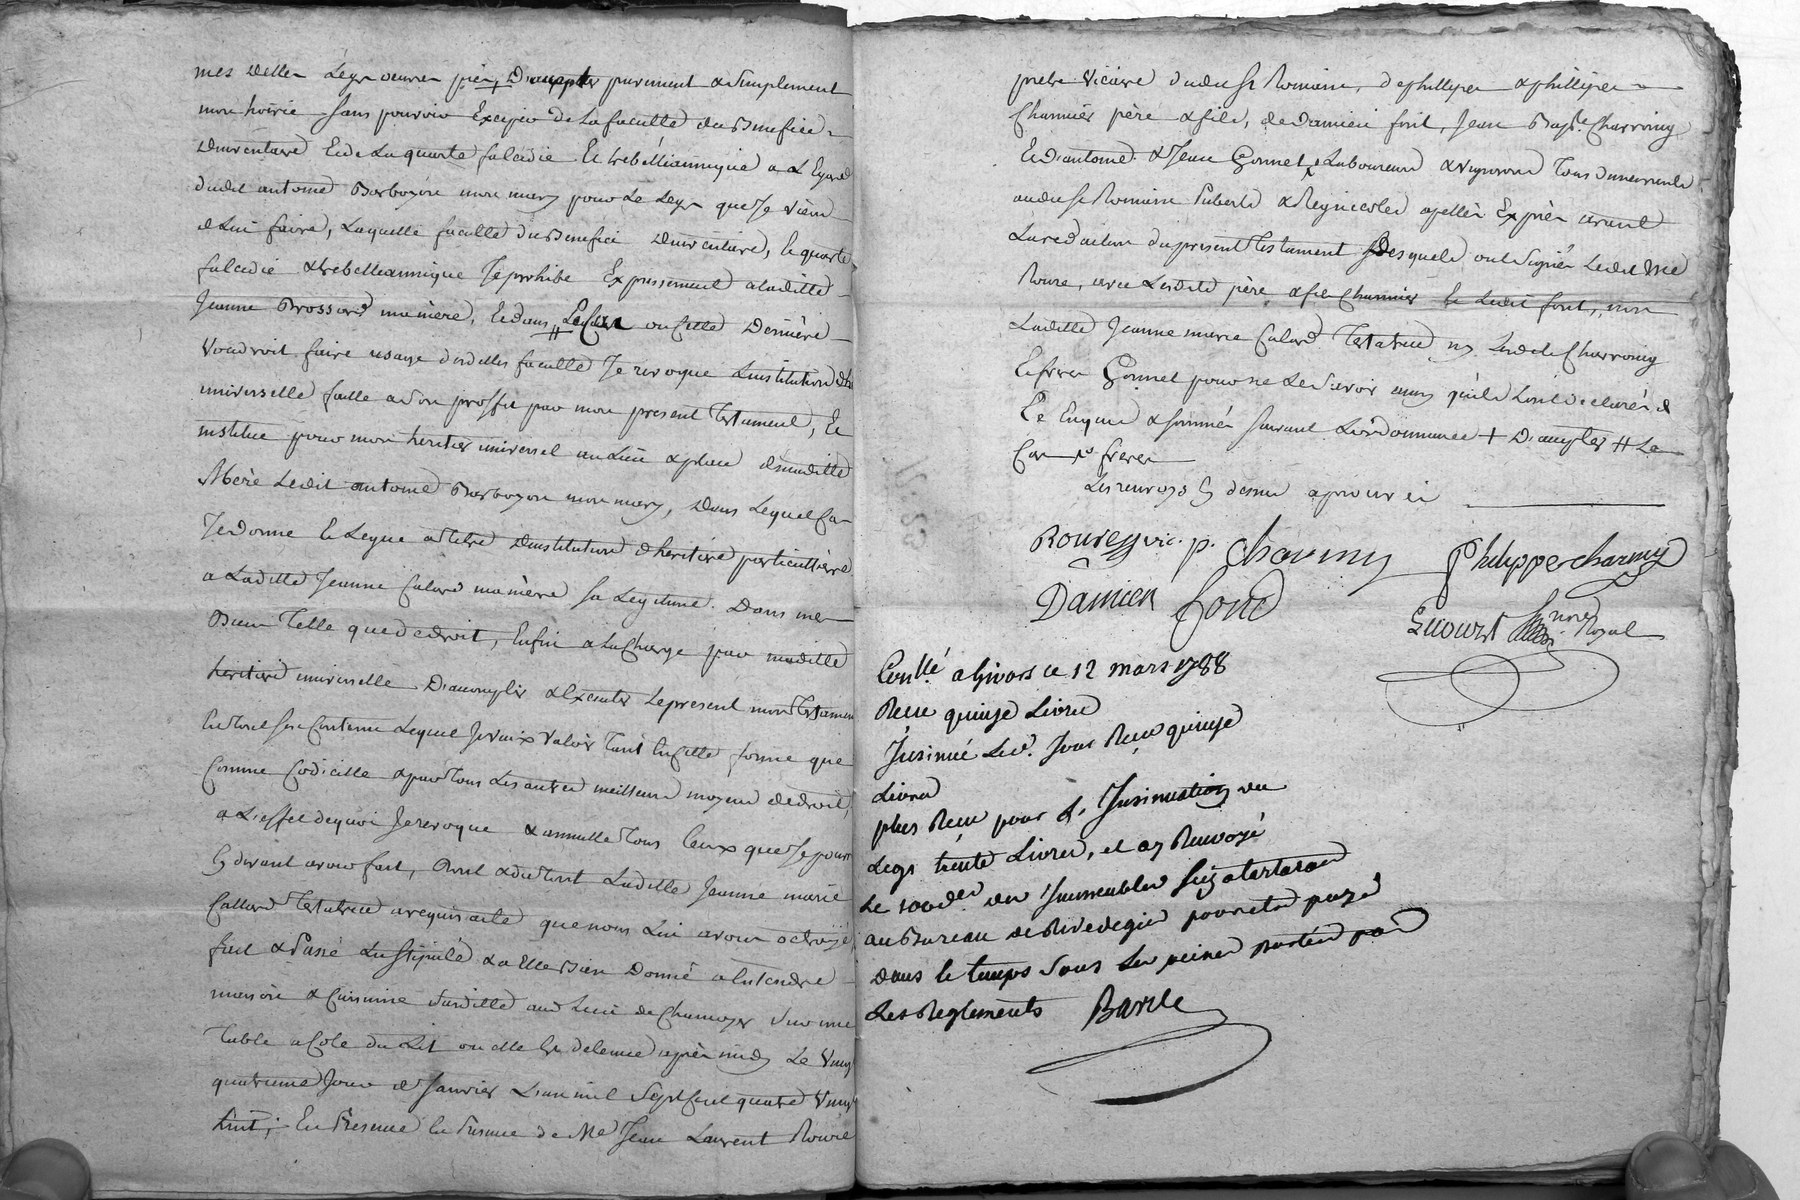 mes dettes Legs oeuvres pies, + D'accepter purement & simplement
mon hoirie sans pouvoir Exciper de La faculté du Benefice
Dinventaire Et de La quarte falcidie Et trebelliannique a L'Egard
dudit antoine Barboyon mon mary pour Le Legs que Je vien
de Lui faire, Laquelle faculté du Benefice Dinventaire, le quarte
falcidie & trebelliannique Je prohibe Expressement a Laditte
Jeanne Brossard ma mère, Et dans # Le Cas ou cette Dernière
voudroit faire usage desdittes faculté Je revoque Linstitution
universelle faitte a Son proffit par mon present Testament, Et
institue pour mon heritier universel au Lieu & place de maditte
Mère Ledit antoine Barboyon mon mary, Dans Lequel Cas
Je donne & Legue a titre Dinstitution d'heritiere particulliere
a Laditte Jeanne Calard ma mère Sa Legitime Dans mes
Biens Telle que de droit, Enfin a La Charge par maditte
heritiere universelle D'accomplir & Executer Le present mon Testamen
En tout son Contenu Lequel Je vaix valoir Tant En Cette forme que
Comme Codicille & par tous Les autres meilleurs moyens de droit,
a L'effet de quoi Je revoque & annulle Tous Ceux que Je pourr
Cy devant avoir fait, Dont & du tout Laditte Jeanne marie
Callard Testatrice a requis acte que nous Lui avons octroyé
fait & Passé Lu Stipulé & a Elle Bien Donné a Entendre
maison & Cuisine Susditte aud Lieu de Chamoyer Sur une
Table a Coté du Lit ou elle Est detenue après midy Le vingt
quatrieme Jour de Janvier L'an mil Sept Cent quatre vingt
huit; En Presence de Me Jean Laurent Roure
pretre vicaire dudit St Romain, de phillipe & phillipe
Charmier père & fils, de Damien font, Jean Bapte. Charroing
Et d'antoine & Jean Gonnet, Laboureurs & vignerons Tous demeurants
audit St Romain Puberts & Regnicoles apellés Exprès avant
La redaction du present Testament Desquels ont Signés Ledit Me
Roure, avec Lesdits père & fils Charmier & Ledit font, non
Laditte Jeanne marie Calard Testatrice ny Ledit Charroing
Et freres Gonnet pour ne Le Savoir ainsy qu'ils L'ont declarés de
Ce Enquis & Sommés Suivant L'ordonnance + D'accepter # Le
Cas freres
Les renvoys Cy dessus aprouvés
Rourezz vic. p. charmy Philippe charmy
Damien Font
Guourst nore Royal
Conllé. a Givors ce 12 mars 1788
Reçu quinze Livres
Insinué Led. Jour Reçu quinze
Livres
plus Reçu pour L'Insinuation du
Legs trente Livres, et ay Renvoyé
Le 100der des Immeubles Sis a tartaras
au Bureau de Rivedegier pour etre payé
dans le temps Sous Les peines portées par
Les Reglements Barile